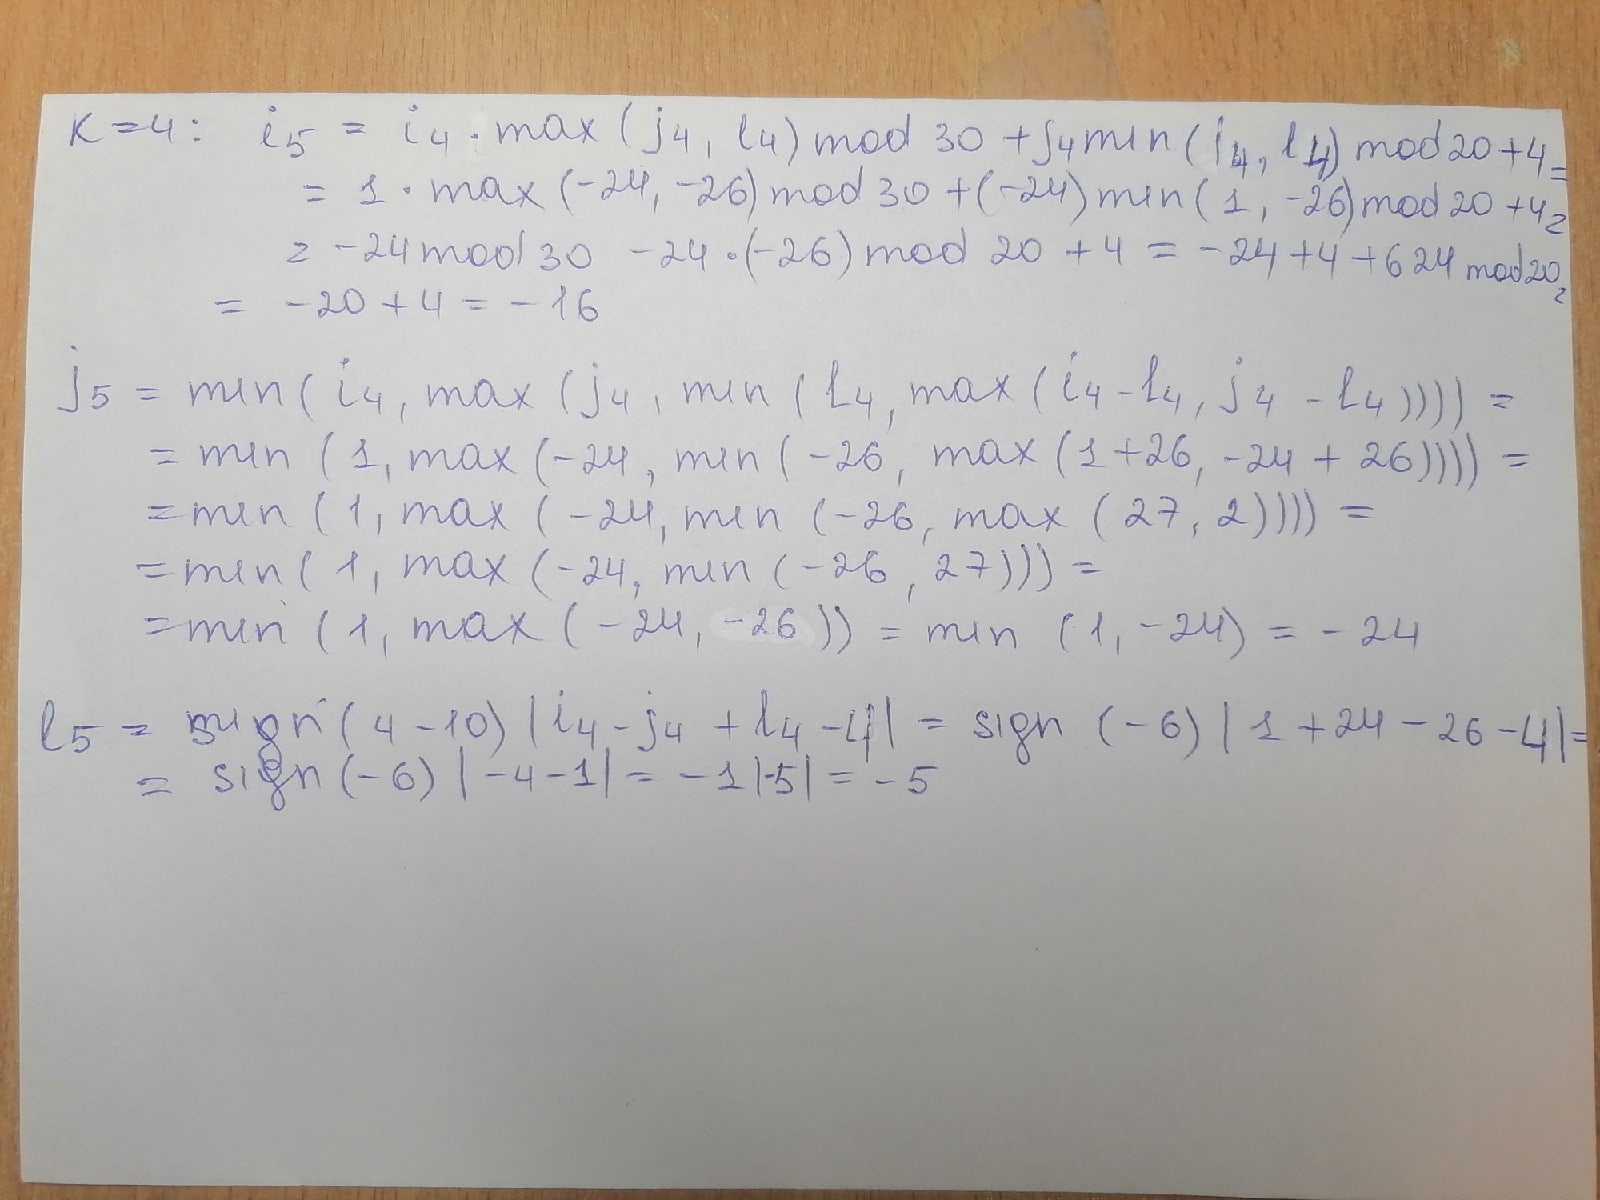 K=4: i5 = i4 · max (j4, l4) mod 30 + j4 min (i4, l4) mod 20 + 4 =
= 1 · max (-24, -26) mod 30 + (-24) min (1, -26) mod 20 + 4 =
= -24 mod 30 -24 · (-26) mod 20 + 4 = -24 + 4 + 624 mod 20 =
= -20 + 4 = -16
j5 = min (i4, max (j4, min (l4, max (i4 - l4, j4 - l4)))) =
= min (1, max (-24, min (-26, max (1+26, -24 + 26)))) =
= min (1, max (-24, min (-26, max (27, 2)))) =
= min (1, max (-24, min (-26, 27))) =
= min (1, max (-24, -26)) = min (1, -24) = -24
l5 = sign (4 - 10) |i4 - j4 + l4 - 4| = sign (-6) |1 + 24 - 26 - 4| =
= sign (-6) |-4 - 1| = -1 |-5| = -5